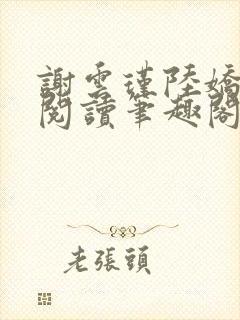 謝雲瑾陸嬌
閱讀筆趣閣
老張頭